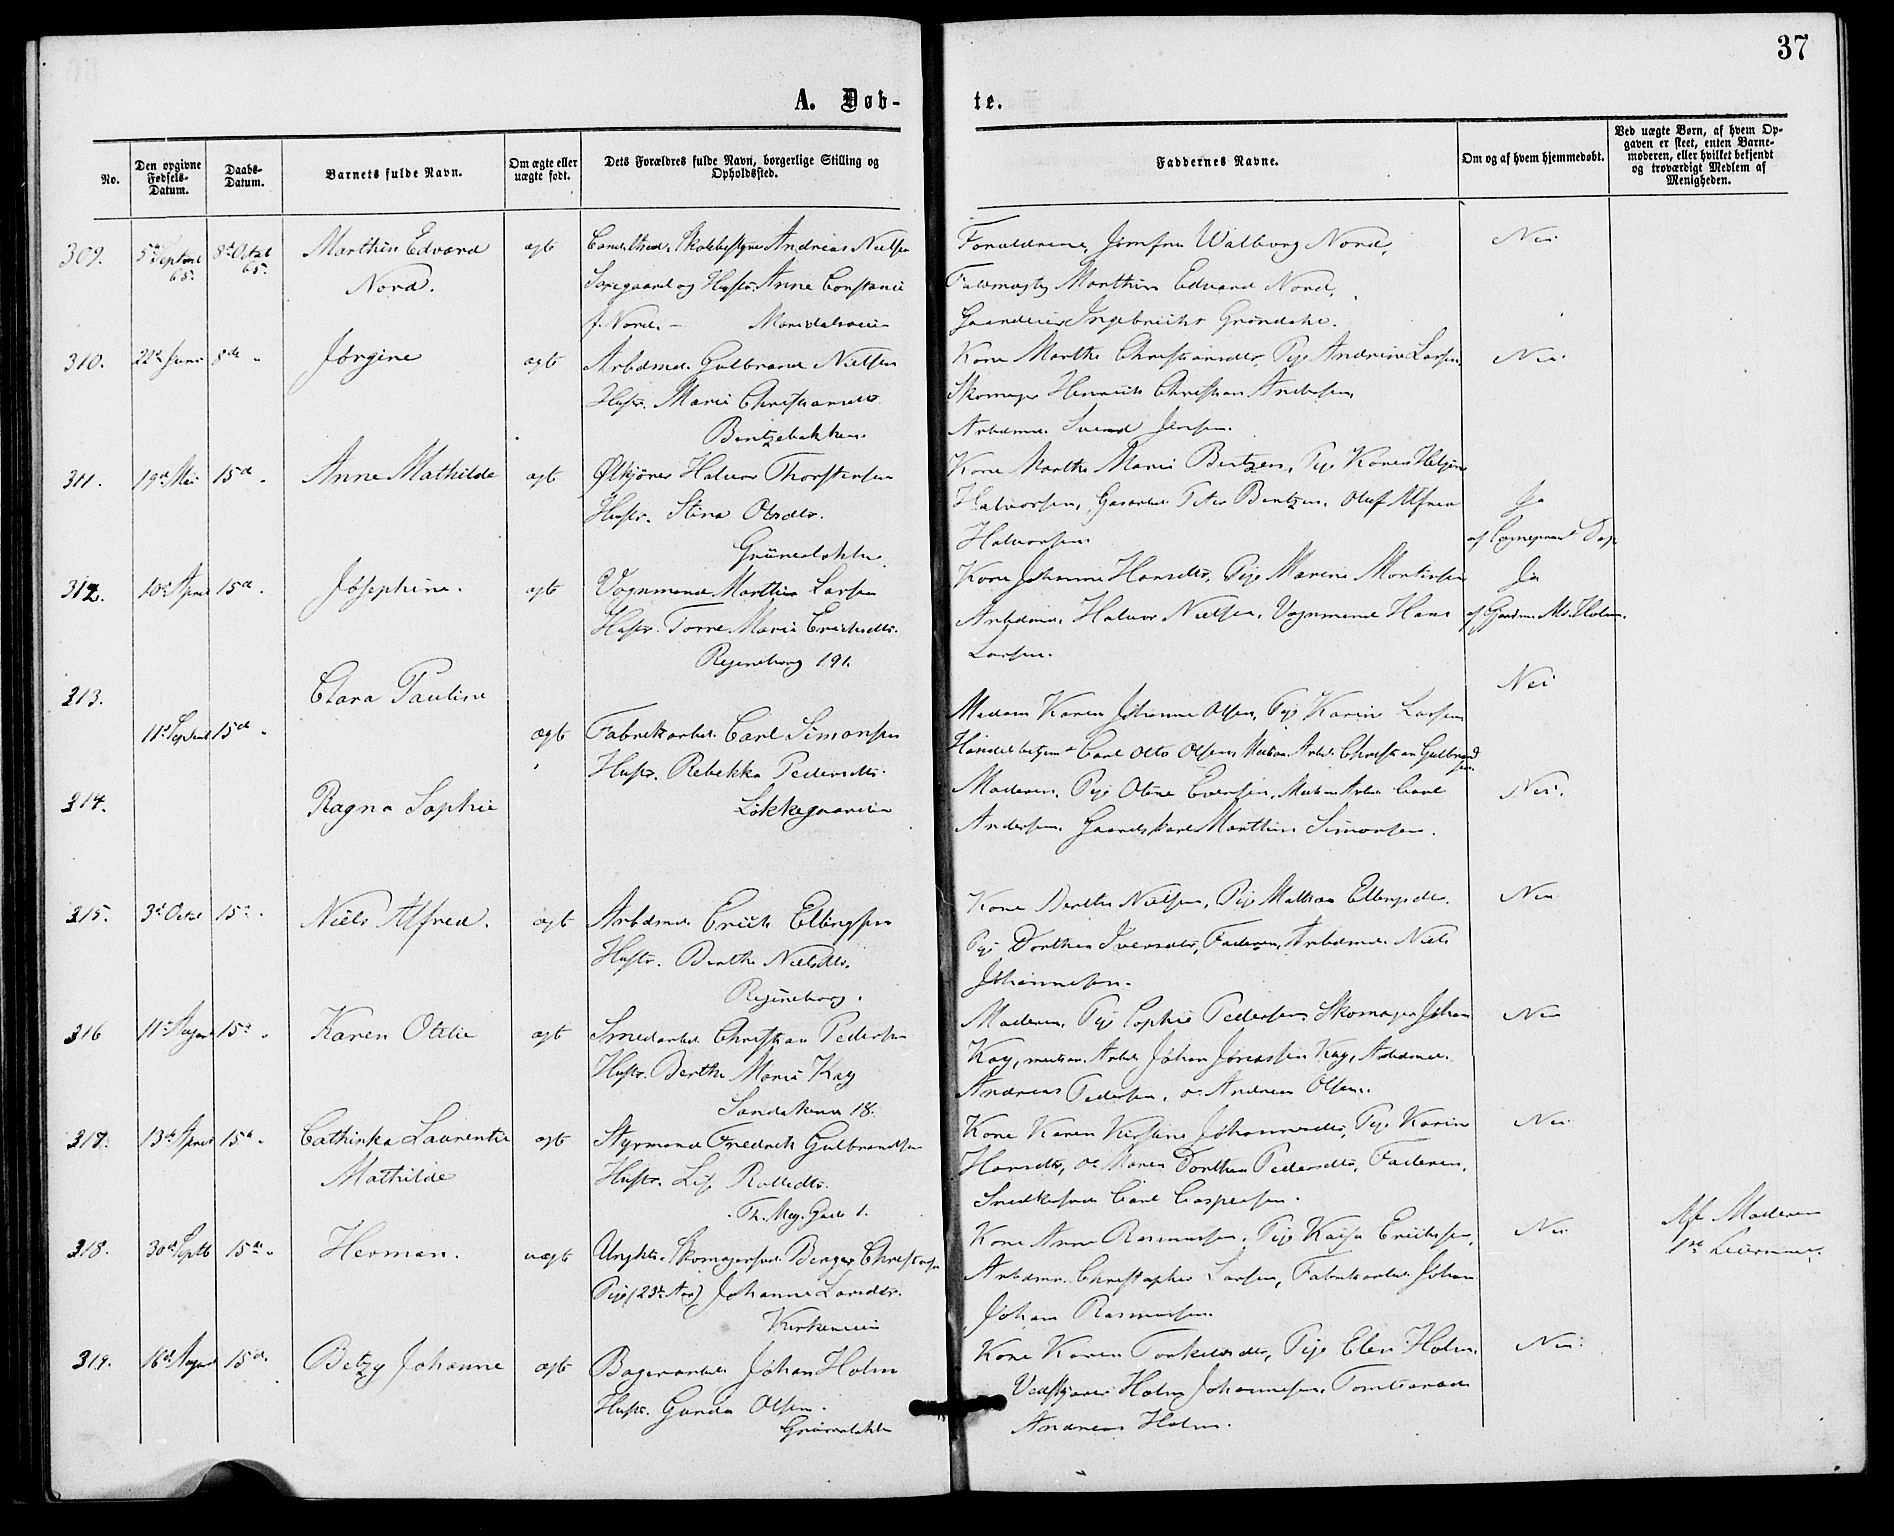 37
A. Døb-
te.
No.
Den opgivne Fødsels-Datum.
Daabs-Datum.
Barnets fulde Navn.
Om ægte eller uægte født.
Dets Forældres fulde Navn, borgerlige Stilling og Opholdssted.
Faddernes Navne.
Om og af hvem hjemmedøbt.
Ved uægte Børn, af hvem Opgaven er skeet, enten Barnemoderen, eller hvilket bekjendt og troværdigt Medlem af Menigheden.
309. 8de Octbr 65. Marthin Edvard ægte Andreas Nielsen
Nord. Hustr. Anne Constance
f. Nord. – Maridalsveien
Forældrene, Jomfru Walborg Nord, Nei
Marthin Edvard Nord,
Ingebricht Grøndahl.
310. 22de Juni 8de " Jørgine ægte Arbdmd. Gulbrand Nielsen
Hustr. Marie Christiansdtr.
Bentzebakken.
Kone Marthe Christiansdtr, Pige Andrine Larsen, Nei
Skomager Henrick Christian Andersen,
Arbdmd. Svend Jensen.
311. 19de Mai 15de " Anne Mathilde ægte Ølkjører Halvor Thorstensen
Hustr. Stina Olsdtr.
Grünerløkken
Kone Marthe Marie Bentzen, Pige Karen
Halvorsen, Peter Bentzen, Oluf Alfred
Halvorsen. Ja
312. 10de April 15de " Josephine. ægte Vognmand Marthin Larsen
Hustr. Torine Marie Erichsdtr.
Regineborg 191.
Kone Johanne Hansdtr, Pige Marene Mortensen Ja
Arbdmd. Halvor Nielsen, Vognmand Hans
Larsen.
313. Clara Pauline Nei
11te Septbr 15de " ægte Fabrikarbd. Carl Simonsen
Hustr. Rebekka Pedersdtr.
Løkkegaarden
Madam Karen Johanne Olsen, Pige Karine Larsen
Handelsbetjent Carl Otto Olsen, Christian Gulbrandsen
314. Ragna Sophie
Moderen, Pige Oline Evensen, Carl Nei.
Andersen, Gaardskarl Marthin Simonsen.
315. 3de Octbr 15de " Niels Alfred. ægte Arbdmd. Erick Ellingsen
Hustr. Berthe Nielsdtr.
Regineborg.
Kone Berthe Nielsen, Pige Mathea Nei
Pige Dorthea Iversdtr, Faderen, Arbdmd. Niels
Johannesen.
316 11te August 15de " Karen Otilie ægte Smedarbd. Christian Pedersen
Hustr. Berthe Marie Kay
Sandakerv 18.
Moderen, Pige Sophie Pedersen, Skomager Johan Nei
Kay, Johan Jonassen Kay, Arbdmd.
Andreas Pedersen, Andreas Olsen.
317. 13de April 15de " Cathinka Laurentie ægte Styrmand Fredrik Gulbrandsen
Mathilde Hustr.
Th. Mey. Gade 1.
Kone Karen Kirstine Johannesdtr, Pige Karine Nei
Hansdtr, Maren Dorthea Pedersdtr, Faderen,
Carl Caspersen.
318. 30de Septb 15de " Herman. uægte Ungkl. Skomagersvd. Berger Christensen
Pige (23de Aar) Johanne Larsdtr.
Kirkeveien
Kone Anne Rasmussen, Pige Kaisa Erichsen, Nei Af Moderen
Arbdmd. Christopher Larsen, Fabrikarbd. Johan
Johan Rasmussen.
319. 16de August 15de. Betzy Johanne ægte Bagerarbd. Johan Holm
Hustr. Gunda Olsen.
Grünerløkken
Kone Karen Torkelsdtr, Pige Elen Holm, Nei.
Holm Johannesen,
Andreas Holm.